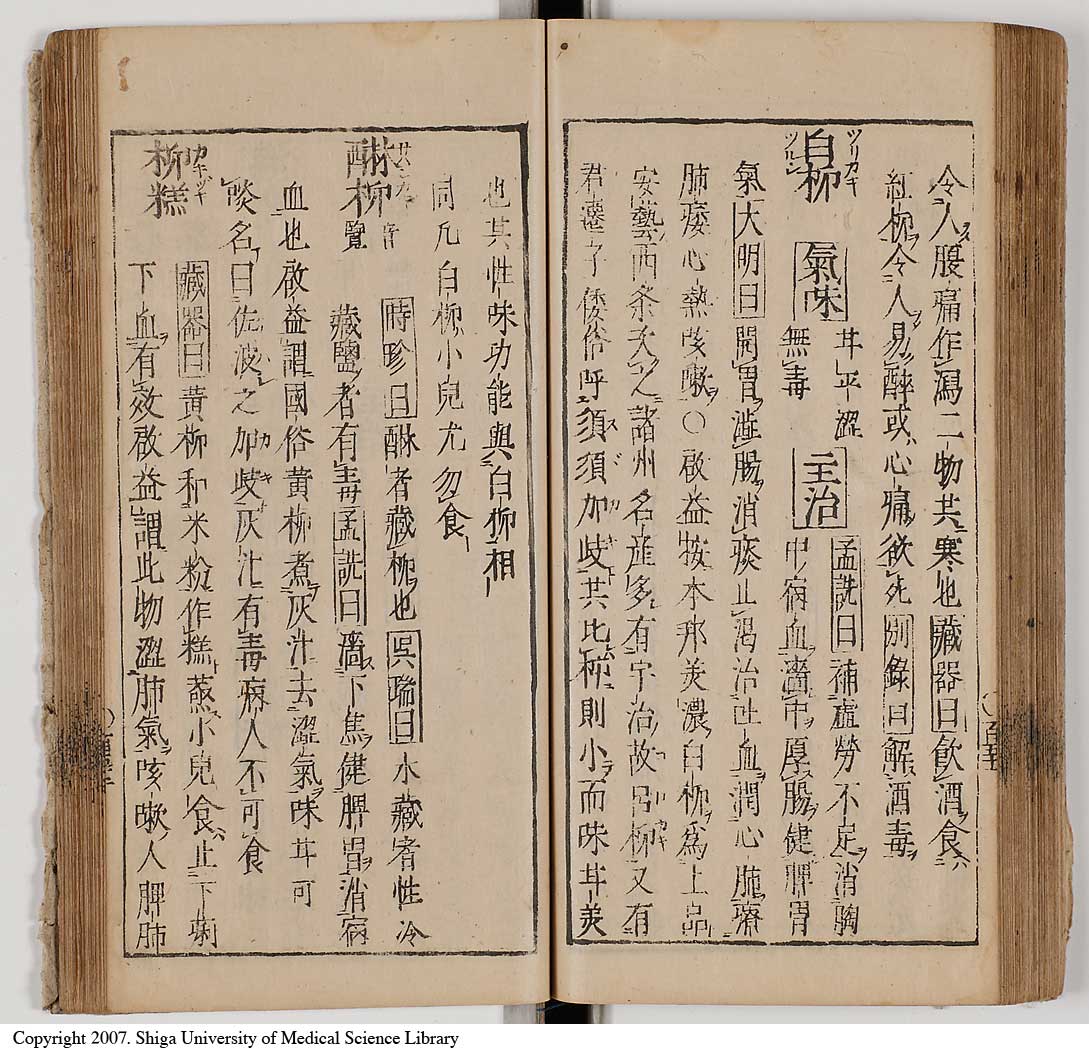 令人腹痛作瀉二物共寒也藏器曰飲酒食
紅柹令人易醉或心痛欲死別錄曰解酒毒
白柹 ツリカキ ツルシ 氣味 甘平澀無毒 主治 孟詵曰補虛勞不足消胸
中病血濇中厚腸健脾胃
氣大明曰開胃澁腸消痰止渴治吐血潤心肺療
肺痿心熱咳嗽〇啟益按本邦美濃白柹爲上品
安藝西条次之諸州名産多有宇治故呂柹又有
君遷子倭俗呼須須加歧其比柹則小而味甘美
也其性味功能與白柹相
同凡白柹小兒尤勿食
醂柹 音覽 時珍曰醂者藏柹也吳瑞曰水藏者性冷
藏鹽者有毒孟詵曰濇下焦健脾胃消病
血也啟益謂國俗黃柹煮灰汁去澀氣味甘可
啖名曰佐波之加歧灰汁有毒病人不可食
柹糕 藏器曰黃柹和米粉作糕蒸小兒食止下痢
下血有效啟益謂此物澀肺氣咳嗽人脾肺
Copyright 2007. Shiga University of Medical Science Library